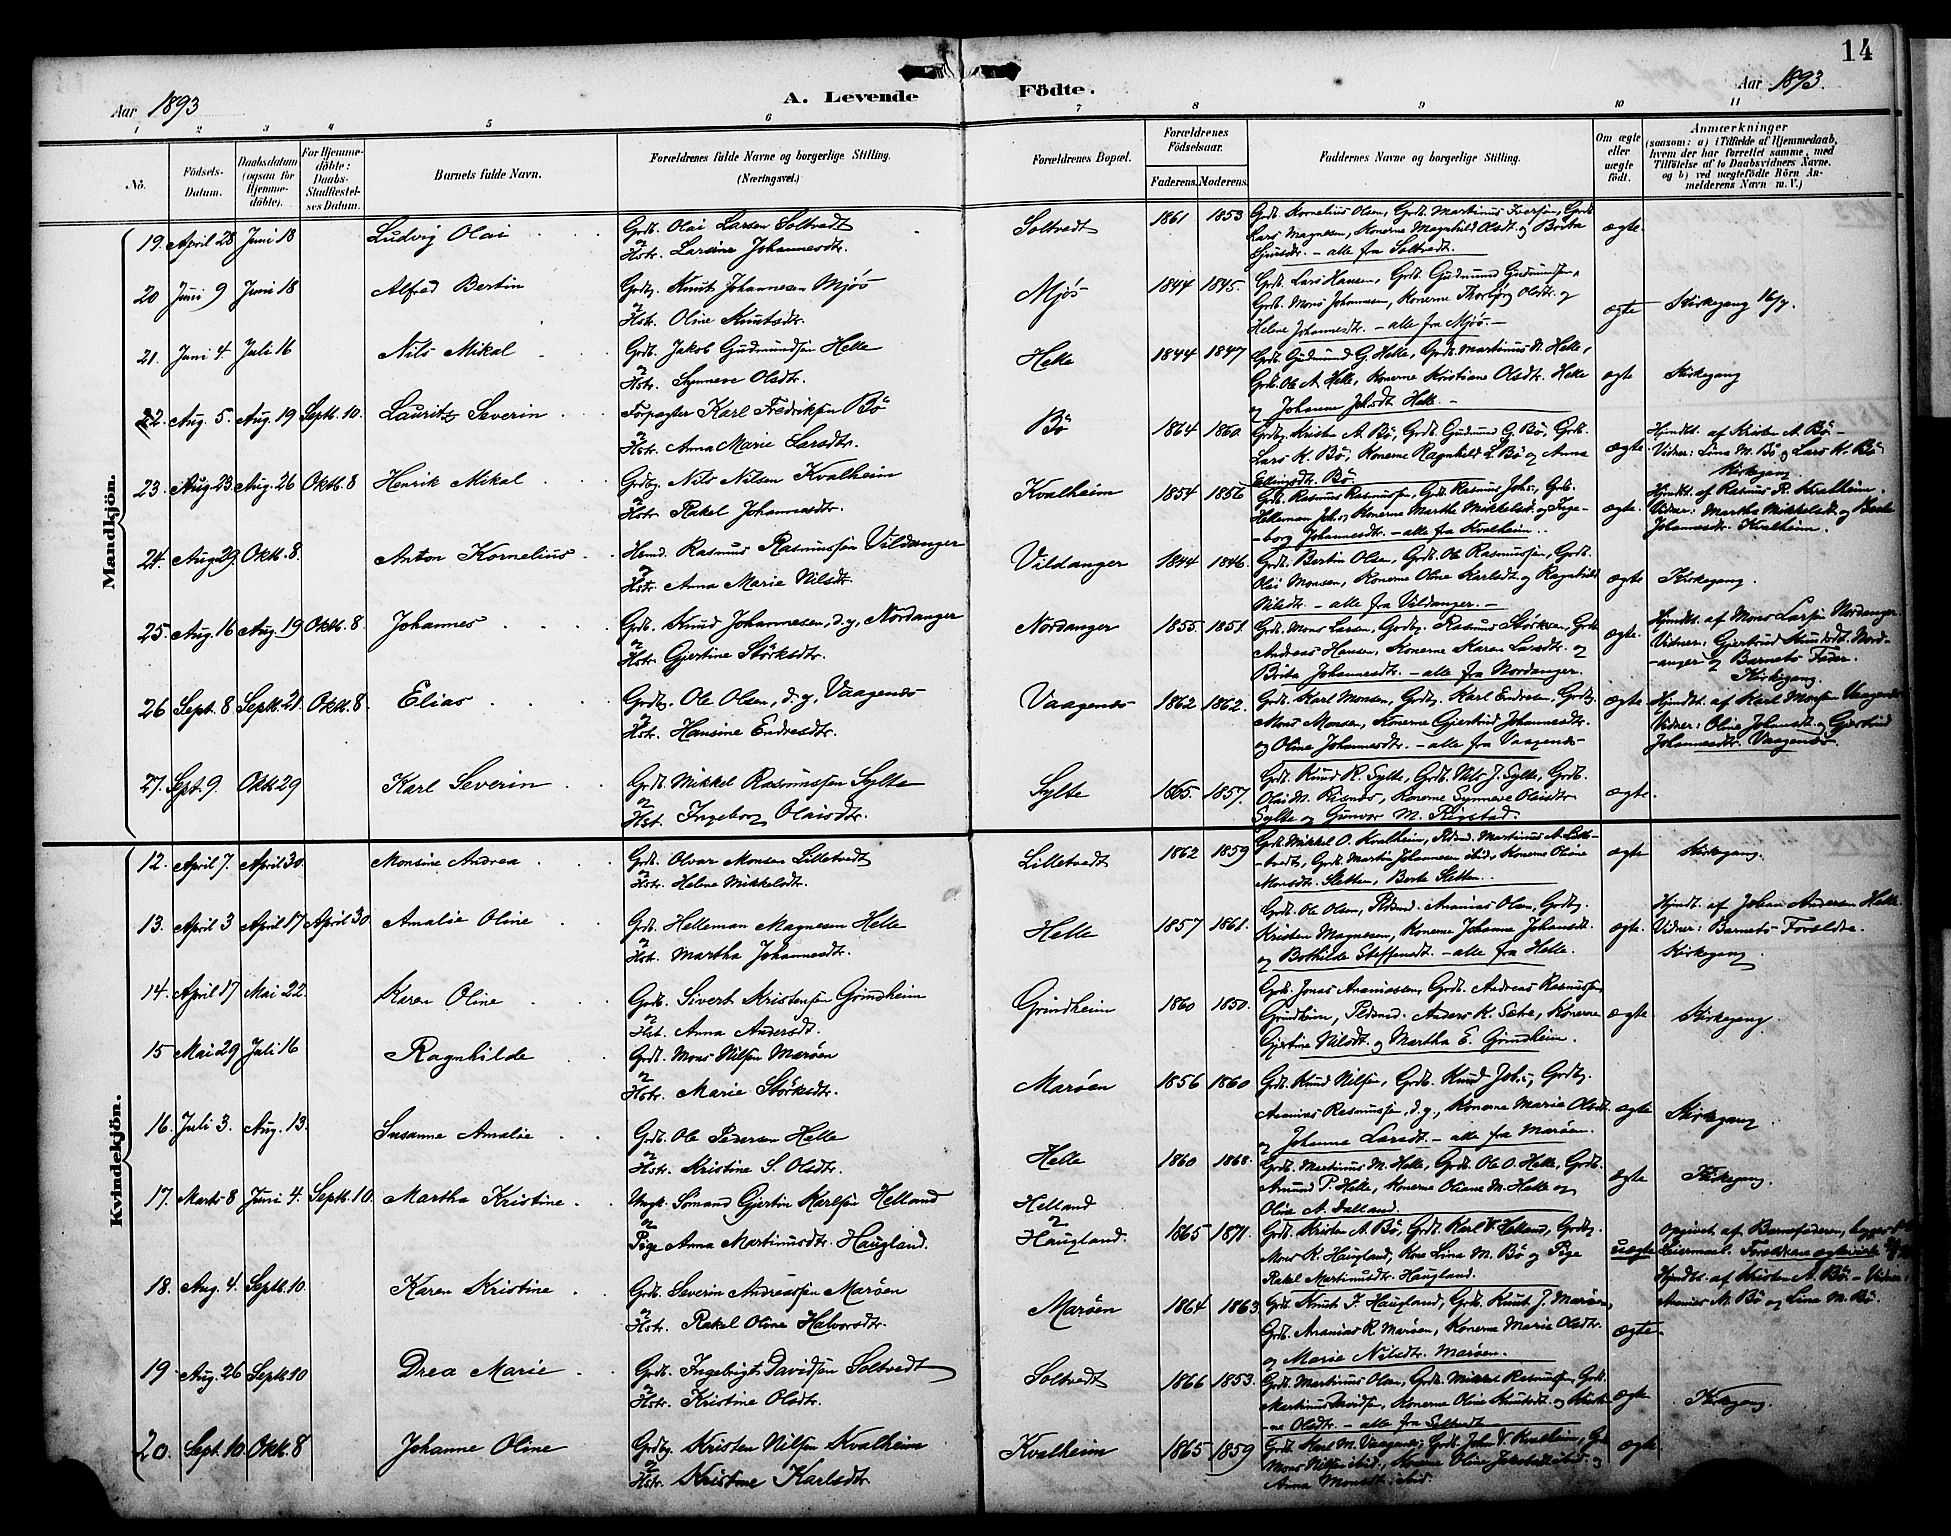 14
Aar 1893
A. Levende Födte.
Aar 1893.
1 2 3 4 5 6 7 8 9 10 11
No.
Födsels-Datum.
Daabsdatum (ogsaa for Hjemme-döbte).
For Hjemme-döbte: Daabs-Stadfæstel-ses Datum.
Barnets fulde Navn.
Forældrenes fulde Navne og borgerlige Stilling. (Næringsvei.)
Forældrenes Bopæl.
Forældrenes Födselsaar.
Faderens. Moderens.
Faddernes Navne og borgerlige Stilling.
Om ægte eller uægte födt.
Anmærkninger
(saasom: a) i Tilfælde af Hjemmedaab, hvem der har forrettet samme, med Tilföielse af to Daabsvidners Navne, og b) ved uægtefödte Börn An-melderens Navn m. V.)
Mandkjön.
19. April 28 Juni 18 Ludvig Olai Grdb. Olai Larsen Soltvedt
og Hstr. Larsine Johannesdtr. Soltvedt 1861 1853
Grdb. Kornelius Olsen, Grdb. Martinus Iversen, Grdb.
Lars Magnesen, Konerne Magnhild Olsdt. og Brita
Sjursdtr. - alle fra Soltvedt. ægte.
20 Juni 9 Juni 18 Alfred Bertin Grdbg. Knut Johannesen Mjös
og Hstr. Oline Knutsdtr. Mjös 1844 1845.
Grdb. Lars Hansen, Grdb. Gudmund Gudmundsen,
Grdb. Mons Johannesen, Konerne Thorbjörg Olsdtr. og
Helene Johannesdtr. - alle fra Mjös. - ægte Kirkegang 16/7.
21. Juni 4. Juli 16 Nils Mikal Grdb. Jakob Gudmundsen Helle
og Hstr. Synneve Olsdtr. Helle 1844 1847
Grdb. Gudmund G. Helle, Grdb. Martinus N. Helle,
Grdb. Ole A. Helle, Konerne Kristiane Olsdtr. Helle
og Johanne Johsdt. Helle. - ægte Kirkegang
22. Aug. 5. Aug. 19 Septb. 10. Lauritz Severin Forpagter Karl Fredriksen Bö
og Hstr. Anna Marie Larsdtr. Bö 1864 1860.
Grdbg. Kristen A. Bö, Grdb. Gudmund G. Bö, Grdb.
Lars K. Bö, Konerne Ragnhild L. Bö og Anna
Ellingsdtr. Bö. ægte. Hjmdt. af Kristen A. Bö -
Vidner: Lina M. Bö og Lars K. Bö
Kirkegang
23. Aug. 23 Aug. 26 Oktb. 8 Henrik Mikal Grdbg. Nils Nilsen Kvalheim
og Hstr. Rakel Johannesdtr. Kvalheim 1854 1856
Grdb. Rasmus Rasmussen, Grdb. Rasmus Johs., Grdb.
Helleman Johs. og Konerne Martha Mikkelsd. og Inge-
-borg Johannesdtr. - alle fra Kvalheim. ægte. Hjmdt. af Rasmus R. Kvalheim.
Vidner: Martha Mikkelsd. og Berte
Johannesdr. Kvalheim.
24. Aug. 29. Oktb. 8. Anton Kornelius Hmd. Rasmus Rasmussen Vildanger
og Hstr. Anna Marie Nilsdt. Vildanger 1844 1846.
Grdb. Bertin Olsen, Grdb. Ole Rasmussen, Grdb.
Olai Monsen, Konerne Oline Karlsdt. og Ragnhild
Nilsdtr. - alle fra Vildanger. - ægte Kirkegang.
25 Aug. 16 Aug. 19 Oktb. 8. Johannes Grdb. Knud Johannesen, d.y., Nordanger
og Hstr. Gjertine Störksdtr. Nordanger 1855 1851.
Grdb. Mons Larsen, Grdbg. Rasmus Störksen, Grdb.
Andreas Hansen, Konerne Karen Larsdtr. og
Brita Johannesdtr. - alle fra Nordanger. ægte. Hjmdt. af Mons Larsen Nordanger
Vidner: Gjertrud Knudsdt. Nord-
-anger og Barnets Fader.
Kirkegang.
26 Sept. 8 Septb. 21. Oktb. 8. Elias Grdbg. Ole Olsen, d.y., Vaagenes
og Hstr. Hansine Endresdtr. Vaagenes 1862 1862.
Grdb. Karl Monsen, Grdbg. Karl Endresen, Grdbg.
Mons Monsen, Konerne Gjertrud Johannesdtr.
og Oline Johannesdtr. - alle fra Vaagenes. ægte Hjmdt. af Karl Monsen Vaagenes
Vidner: Oline Johansdt. og Gjertrud
Johannesdtr. Vaagenes.
27. Sept. 9. Oktb. 29 Karl Severin Grdb. Mikkel Rasmussen Sylte
og Hst. Ingeborg Olaisdtr. Sylte 1865. 1857.
Grdb. Knud R. Sylte, Grdb. Nils J. Sylte, Grdb.
Olai M. Risnes, Konerne Synneve Olaisdtr.
Sylte og Gunvor M. Rigstad. ægte.
Kvindekjön.
12. April 7. April 30. Monsine Andrea Grdb. Olvar Monsen Lilletvedt
og Hstr. Helene Mikkelsdtr. Lilletvedt 1862 1859
Grdb. Mikkel O. Kvalheim, Pldsmd. Martinus A. Lille-
-tvedt, Grdb. Martin Johannesen ibid., Konerne Oline
Monsdtr. Sletten, Berte Sletten. ægte Kirkegang.
13. April 3 April 17 April 30 Amalie Oline Grdb. Helleman Magnesen Helle
og Hstr. Martha Johannesdtr. Helle 1857 1861.
Grdb. Ole Olsen, Pldsmd. Ananias Olsen, Grdbg.
Kristen Magnesen, Konerne Johanne Johansdt.
og Bothilde Steffensdt. - alle fra Helle. ægte. Hjmdt. af Johan Andersen Helle.
Vidner: Barnets Forældre.
Kirkegang.
14. April 17 Mai 22. Karen Oline Grdb. Sivert Kristensen Grindheim
og Hst. Anna Andersdt. Grindheim 1860 1850.
Grdb. Jonas Ananiassen, Grdb. Andreas Rasmussen
Grindheim, Pldsmd. Anders K. Sæbø, Konerne
Gjertine Nilsdt. og Martha E. Grindheim. ægte. Kirkegang.
15 Mai 29 Juli 16 Ragnhilde Grdb. Mons Nilsen Maröen
og Hstr. Marie Störksdtr. Maröen 1856 1860
Grdb. Knud Nilsen, Grdb. Knud Johs., Grdbg.
Ananias Rasmussen, d.y., Konerne Marie Olsdt.
og Johanne Larsdt. - alle fra Maröen. ægte Kirkegang.
16. Juli 3. Aug. 13. Susanne Amalie Grdb. Ole Pedersen Helle
og Hstr. Kristine S. Olsdtr. Helle 1860 1868.
Grdb. Martinus M. Helle, Grdb. Ole O. Helle, Grdb.
Amund P. Helle, Konerne Oliane M. Helle og
Oline A. Dalland. ægte Kirkegang.
17. Marts 8 Juni 4. Septb. 10. Martha Kristine Ungk. Sömand Gjertin Karlsen Helland
og Pige Anna Martinusdtr. Haugland. Helland og Haugland. 1865 1871.
Grdb. Kristen A. Bö, Grdb. Karl V. Helland, Grdbg.
Mons K. Haugland, Kone Lina M. Bö og Pige
Rakel Martinusdtr. Haugland. uægte Opgivet af Barnefaderen, begges 1ste
Leiermaal. Forældrene ægteviede
Hjmdt. af Kristen A. Bö - Vidner:
Ananias M. Bö og Lina M. Bö.
18. Aug. 4. Septb. 10. Karen Kristine Grdb. Severin Andreassen Maröen
og Hstr. Rakel Oline Halvorsdtr. Maröen 1864 1863
Grdb. Knut J. Haugland, Grdb. Knut J. Maröen,
Grdb. Ananias R. Maröen, Konerne Marie Olsdtr.
og Marie Nilsdtr. Maröen. ægte.
19 Aug. 26 Septb. 10 Drea Marie Grdb. Ingebrigt Davidsen Soltvedt
og Hstr. Kristine Olsdtr. Soltvedt 1866 1853.
Grdb. Martinus Olsen, Grdb. Mikkel Rasmussen, Grdb.
Martinus Davidsen, Konerne Oline Knutsdt. og Kristi-
-ne Olsdtr. - alle fra Soltvedt ægte Kirkegang.
20. Sept. 10 Oktb. 8 Johanne Oline Grdbg. Kristen Nilsen Kvalheim
og Hstr. Kristine Karlsdtr. Kvalheim 1865 1859
Grdb. Karl M. Vaagenes, Grdb. John V. Kvalheim, Grdb.
Mons Nilsen ibid., Konerne Oline Jakobsdt. ibid. og
Anna Monsdt. ibid. ægte.